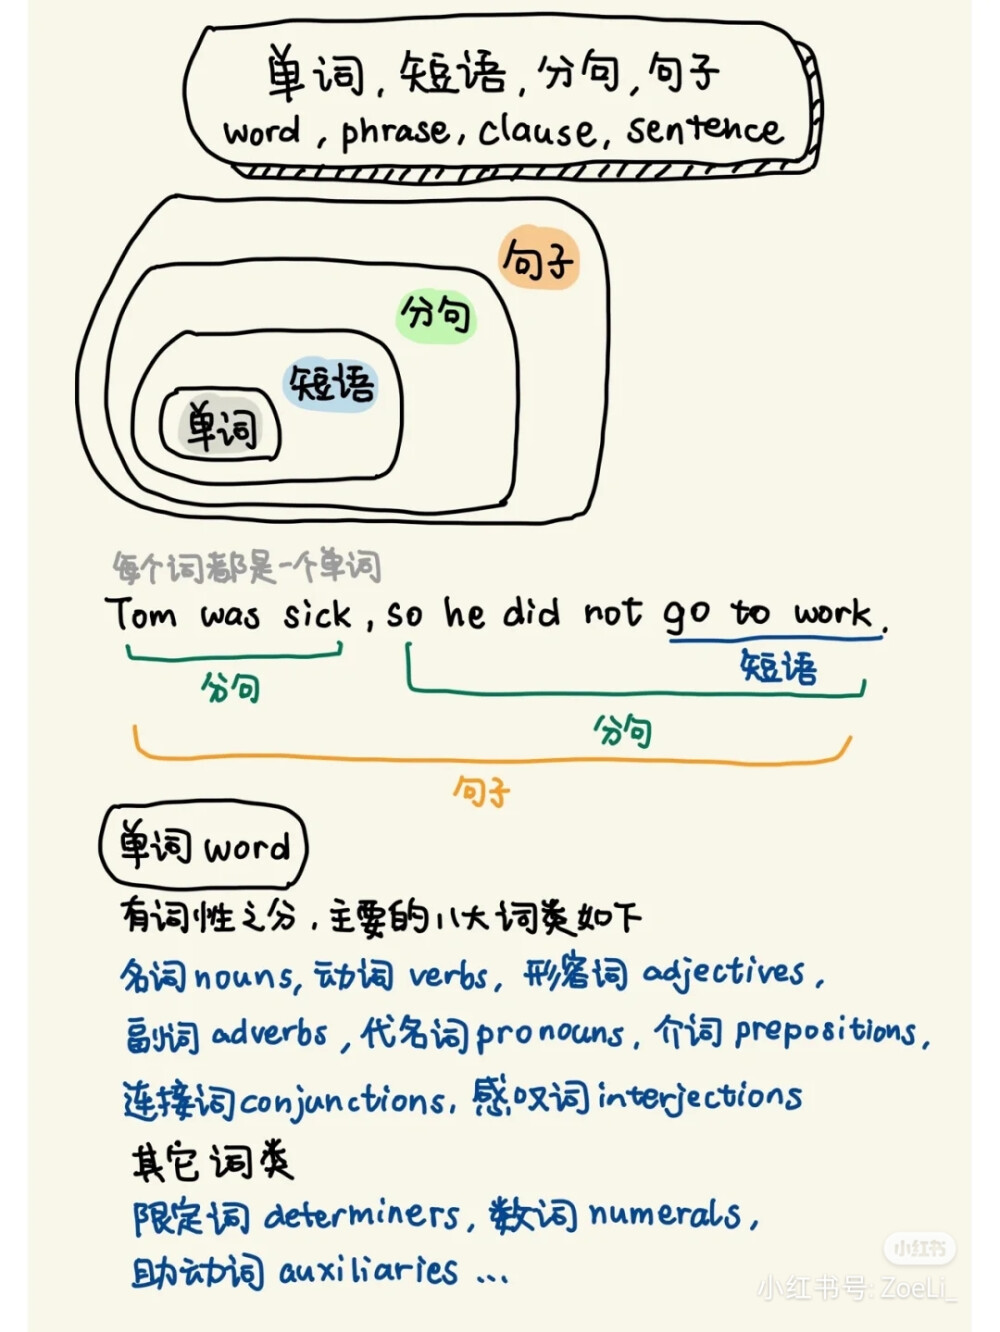 单词,短语,分句,句子
word, phrase, clause, sentence
句子
分句
短语
单词
每个词都是一个单词
Tom was sick, so he did not go to work.
短语
分句
分句
句子
单词 word
有词性之分,主要的八大词类如下
名词 nouns, 动词 verbs, 形容词 adjectives,
副词 adverbs, 代名词 pronouns, 介词 prepositions,
连接词 conjunctions, 感叹词 interjections
其它词类
限定词 determiners, 数词 numerals,
助动词 auxiliaries ...
小红书
小红书号: ZoeLi_